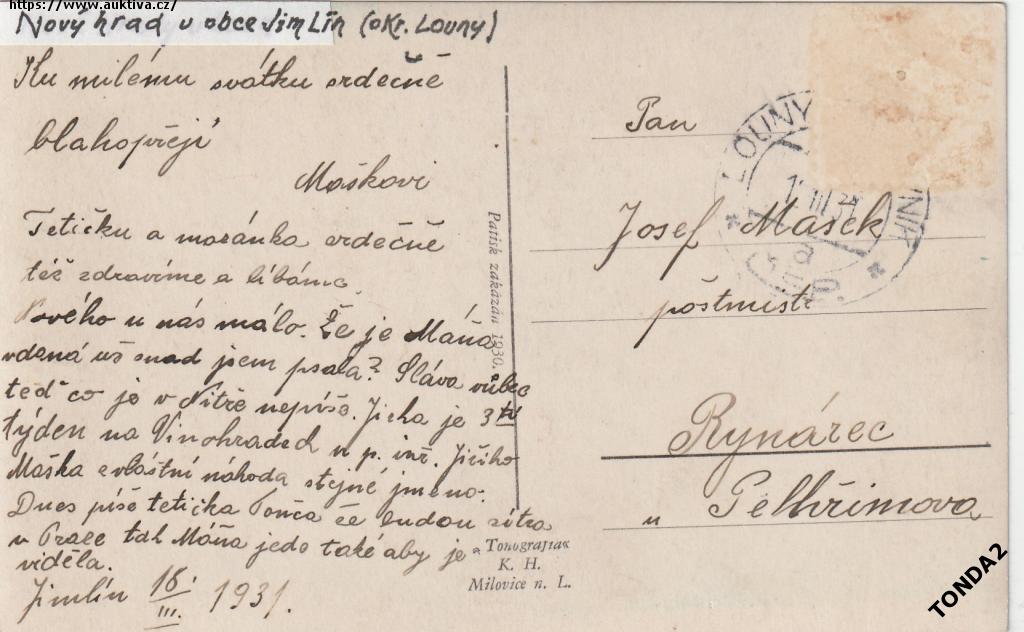 https://www.auktiva.cz/
Nový hrad u obce Jimlín (okr. Louny)
Ku milému svátku srdečně
blahopřejí
Maškovi
Tetičku a mařánka srdečně
též zdravíme a líbáme.
Nového u nás málo. Že je Máňa
vdaná už snad jsem psala? Sláva vůbec
teď co je v Nitře nepíše. Jirka je 3tí
týden na Vinohradech u p. inž. Jiřího
Maška zvláštní náhoda stejné jméno.
Dnes píše tetička Tonča že budou zítra
v Praze tak Máňa jede také aby je
viděla.
Jimlín 18. III. 1931.
Patisk zakázán 1930.
"Tonografia"
K. H.
Milovice n. L.
LOUNY
Pan
Josef Mašek
poštmistr
Rynárec
u Pelhřimova
TONDA2